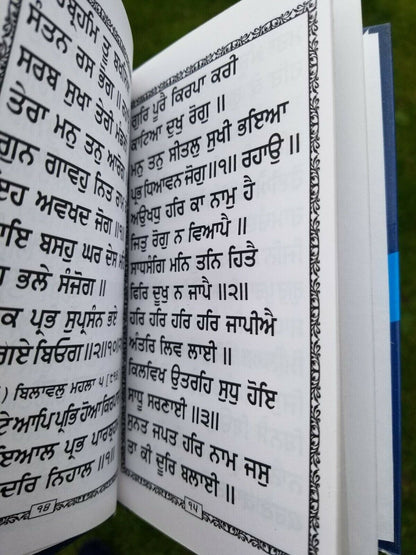 ਸੰਤਨ ਰਸ ਭੋਗ
ਸਰਬ ਸੁਖਾ ਤੇਰੀ
ਤੇਰਾ ਮਨੁ ਤਨੁ
ਗੁਨ ਗਾਵਹੁ ਨਿਤ
ਇਹ ਅਵਖਦ ਜੋਗ ॥
ਬਸਹੁ ਘਰ ਦੇਸ
ਭਲੇ ਸੰਜੋਗ ॥
ਪ੍ਰਭ ਸੁਪ੍ਰਸੰਨ ਭਏ
ਗਏ ਬਿਓਗ ॥੨॥
) ਬਿਲਾਵਲੁ ਮਹਲਾ ੫
ਆਪਿ ਪ੍ਰਭਿ ਹੋਆ
ਪ੍ਰਭ
ਨਿਹਾਲ ॥੧॥
੧੪
ਗੁਰਿ ਪੂਰੈ ਕਿਰਪਾ ਕਰੀ
ਕਾਟਿਆ ਦੁਖੁ ਰੋਗੁ ॥
ਮਨੁ ਤਨੁ ਸੀਤਲੁ ਸੁਖੀ ਭਇਆ
ਪ੍ਰਭ ਧਿਆਵਨ ਜੋਗੁ ॥੧॥ ਰਹਾਉ ॥
ਅਉਖਧੁ ਹਰਿ ਕਾ ਨਾਮੁ ਹੈ
ਜਿਤੁ ਰੋਗੁ ਨ ਵਿਆਪੈ ॥
ਸਾਧਸੰਗਿ ਮਨਿ ਤਨਿ ਹਿਤੈ
ਫਿਰਿ ਦੂਖੁ ਨ ਜਾਪੈ ॥੨॥
ਹਰਿ ਹਰਿ ਹਰਿ ਹਰਿ ਜਾਪੀਐ
ਅੰਤਰਿ ਲਿਵ ਲਾਈ ॥
ਕਿਲਵਿਖ ਉਤਰਹਿ ਸੁਧੁ ਹੋਇ
ਸਾਧੂ ਸਰਣਾਈ ॥੩॥
ਸੁਨਤ ਜਪਤ ਹਰਿ ਨਾਮ ਜਸੁ
ਤਾ ਕੀ ਦੂਰਿ ਬਲਾਈ ॥
੧੫